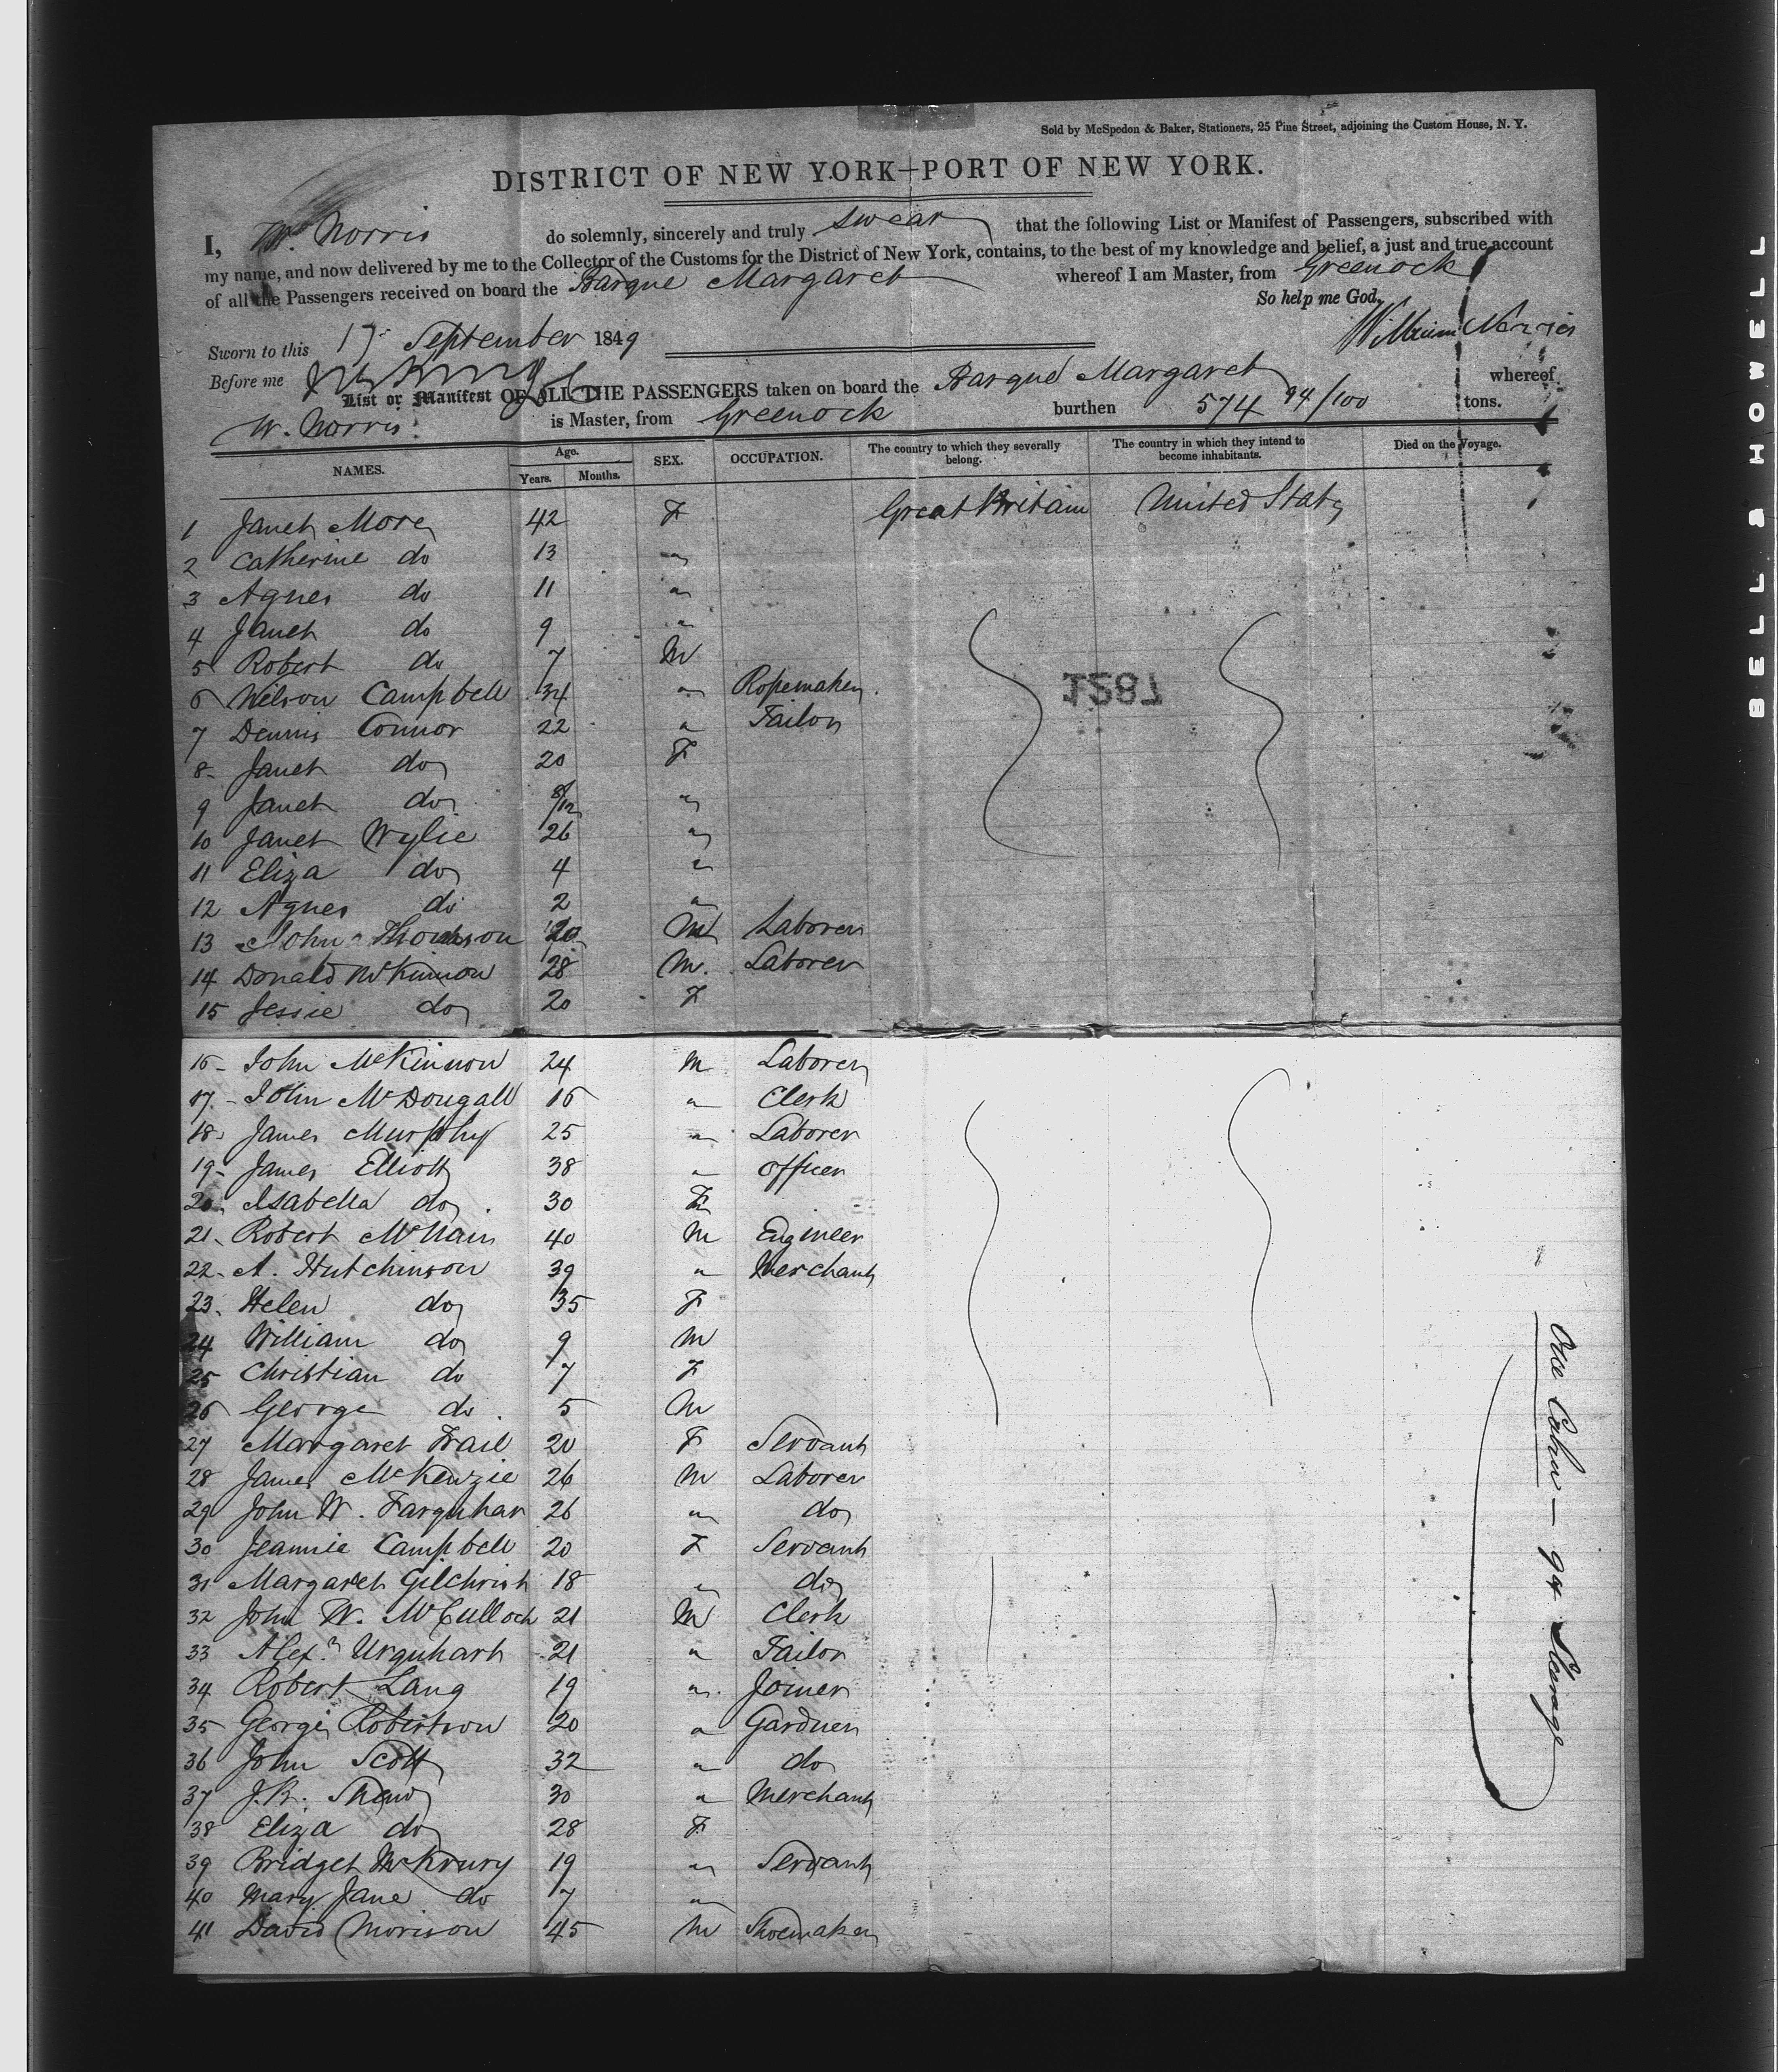 Sold by McSpedon & Baker, Stationers, 25 Pine Street, adjoining the Custom House, N. Y.
DISTRICT OF NEW YORK—PORT OF NEW YORK.
I, W. Norris do solemnly, sincerely and truly swear that the following List or Manifest of Passengers, subscribed with
my name, and now delivered by me to the Collector of the Customs for the District of New York, contains, to the best of my knowledge and belief, a just and true account
of all the Passengers received on board the Barque Margaret whereof I am Master, from Greenock
So help me God.
William Norris
Sworn to this 17 September 1849
Before me
List or Manifest OF ALL THE PASSENGERS taken on board the Barque Margaret whereof
W. Norris is Master, from Greenock burthen 574 94/100 tons.
NAMES. Age. Years. Months. SEX. OCCUPATION. The country to which they severally belong. The country in which they intend to become inhabitants. Died on the Voyage.
1 Janet More 42 F Great Britain United States
2 Catherine do 13 "
3 Agnes do 11 "
4 Janet do 9 "
5 Robert do 7 M
6 Wilson Campbell 34 " Ropemaker
7 Dennis Connor 22 " Tailor
8 Janet do 20 F
9 Janet do 8/12 "
10 Janet Wylie 26 "
11 Eliza do 4 "
12 Agnes do 2 "
13 John Thomson 20 M Laborer
14 Donald McKinnon 28 M. Laborer
15 Jessie do 20 F
16 John McKinnon 24 M Laborer
17 John McDougall 16 " Clerk
18 James Murphy 25 " Laborer
19 James Elliott 38 " Officer
20 Isabella do 30 F
21 Robert McNair 40 M Engineer
22 A. Hutchinson 39 " Merchant
23 Helen do 35 F
24 William do 9 M
25 Christian do 7 F
26 George do 5 M
27 Margaret Trail 20 F Servant
28 James McKenzie 26 M Laborer
29 John W. Farquhar 26 " do
30 Jeannie Campbell 20 F Servant
31 Margaret Gilchrist 18 " do
32 John W. McCulloch 21 M Clerk
33 Alexr Urquhart 21 " Tailor
34 Robert Lang 19 " Joiner
35 George Robertson 20 " Gardner
36 John Scott 32 " do
37 J.R. Shaw 30 " Merchant
38 Eliza do 28 F
39 Bridget 19 " Servant
40 Mary Jane do 7 "
41 David Morison 45 M Shoemaker
1287
Cabin — 94 Steerage
BELL & HOWELL